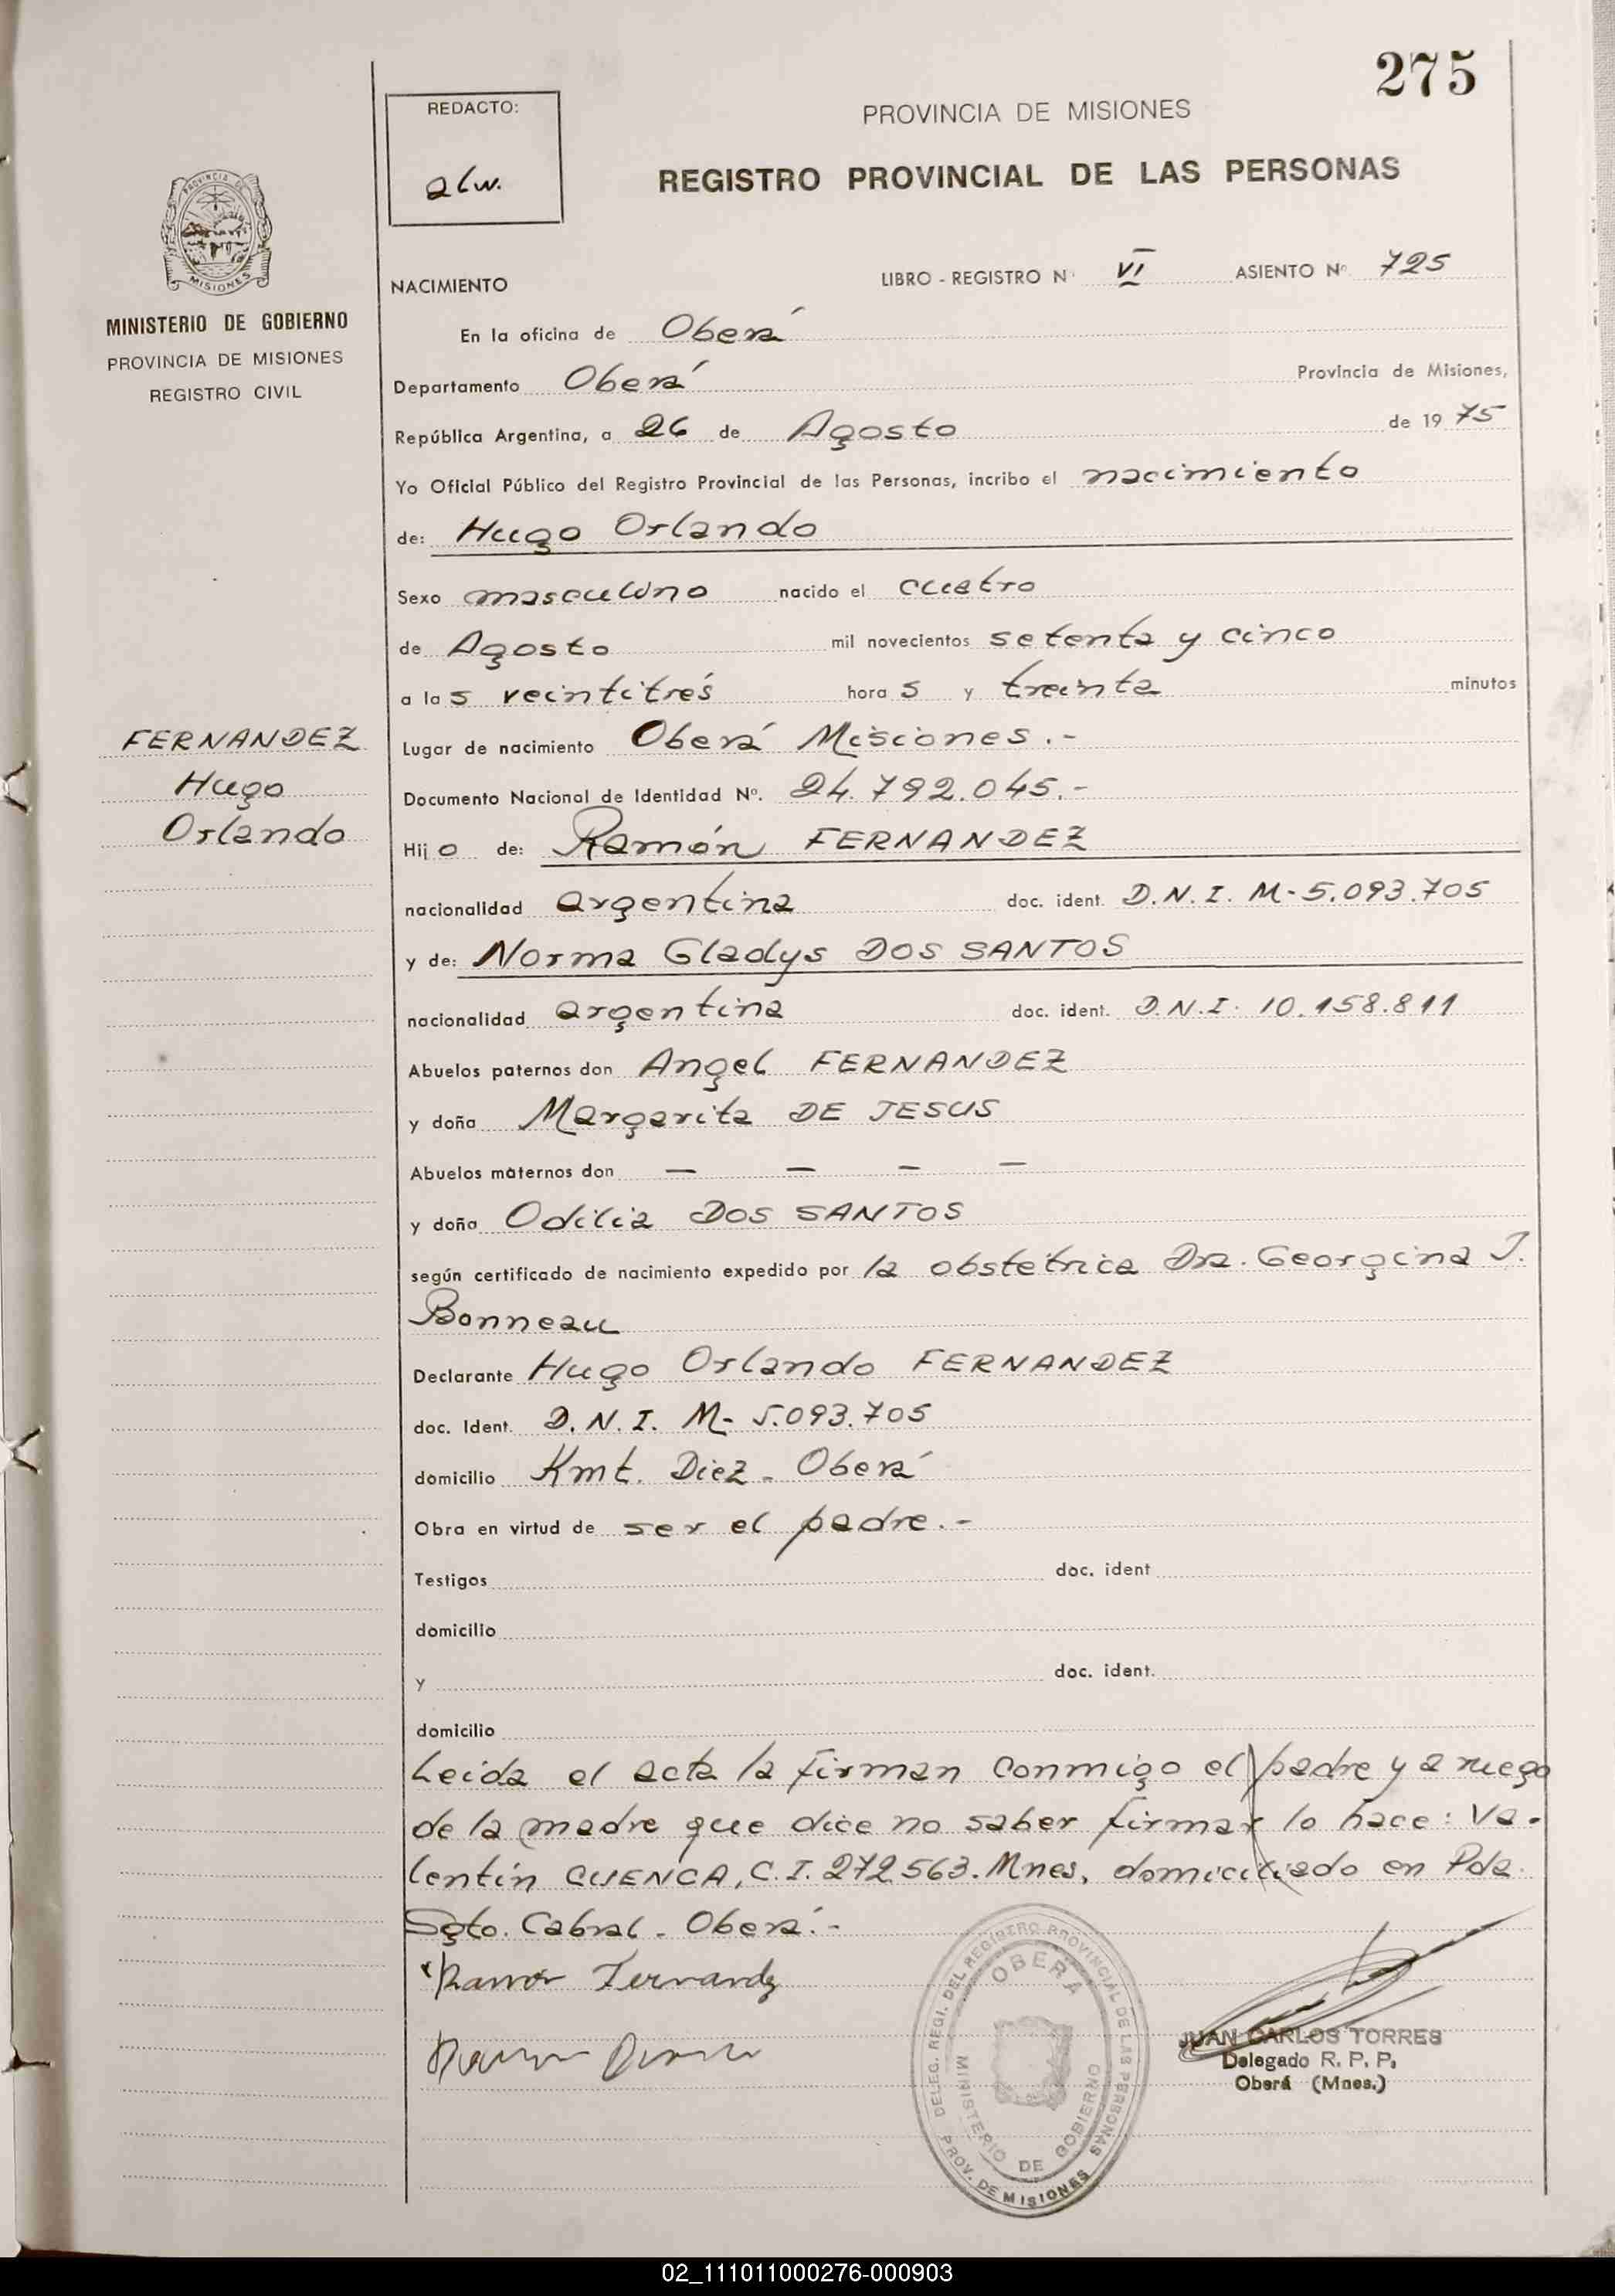 275
REDACTO:
alw.
PROVINCIA DE MISIONES
REGISTRO PROVINCIAL DE LAS PERSONAS
PROVINCIA DE
MISIONES
MINISTERIO DE GOBIERNO
PROVINCIA DE MISIONES
REGISTRO CIVIL
NACIMIENTO LIBRO - REGISTRO Nº VI ASIENTO Nº 725
En la oficina de Oberá
Departamento Oberá Provincia de Misiones,
República Argentina, a 26 de Agosto de 1975
Yo Oficial Público del Registro Provincial de las Personas, incribo el nacimiento
de: Hugo Orlando
Sexo masculino nacido el cuatro
de Agosto mil novecientos setenta y cinco
a las veintitrés horas y treinta minutos
FERNANDEZ
Hugo
Orlando
Lugar de nacimiento Oberá Misiones.-
Documento Nacional de Identidad Nº. 24.792.045.-
Hijo de: Ramón FERNANDEZ
nacionalidad argentina doc. ident. D.N.I. M-5.093.705
y de: Norma Gladys DOS SANTOS
nacionalidad argentina doc. ident. D.N.I. 10.158.811
Abuelos paternos don Angel FERNANDEZ
y doña Margarita DE JESUS
Abuelos maternos don — — — —
y doña Odilia DOS SANTOS
según certificado de nacimiento expedido por la obstetrica Dra. Georgina J.
Bonneau
Declarante Hugo Orlando FERNANDEZ
doc. Ident. D.N.I. M- 5.093.705
domicilio Kmt. Diez - Oberá
Obra en virtud de ser el padre.-
Testigos doc. ident
domicilio
y doc. ident.
domicilio
Leida el acta la firman conmigo el padre y a ruego
de la madre que dice no saber firmar lo hace: Va-
lentín CUENCA, C.I. 272.563. Mnes, domiciliado en Pda.
Sgto. Cabral - Oberá.-
Ramon Fernandez
DELEG. REGI. DEL REGISTRO PROVINCIAL DE LAS PERSONAS
OBERA
MINISTERIO DE GOBIERNO
PROV. DE MISIONES
JUAN CARLOS TORRES
Delegado R. P. P.
Oberá (Mnes.)
02_111011000276-000903